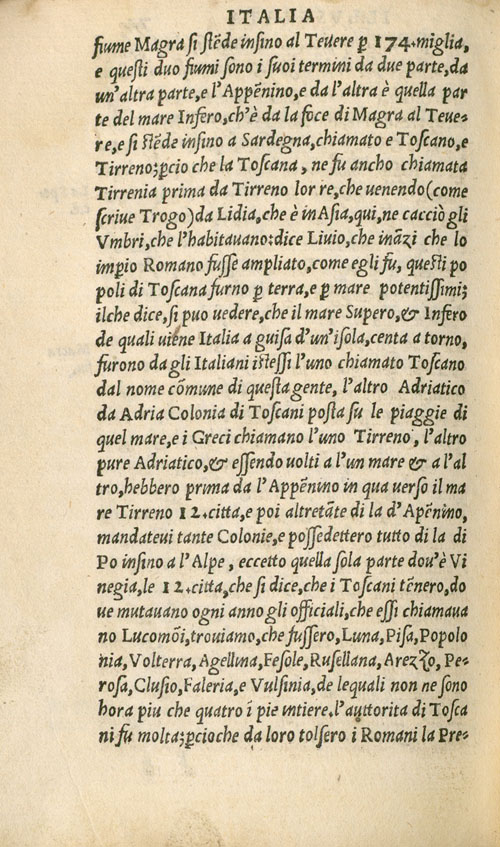 ITALIA
fiume Magra si stẽde insino al Teuere ꝑ 174. miglia,
e questi duo fiumi sono i suoi termini da due parte, da
un'altra parte, e l'Appẽnino, e da l'altra è quella par
te del mare Infero, ch'è da la foce di Magra al Teue-
re, e si stẽde insino a Sardegna, chiamato e Toscano, e
Tirreno; ꝑcio che la Toscana, ne fu ancho chiamata
Tirrenia prima da Tirreno lor re, che uenendo (come
scriue Trogo) da Lidia, che è in Asia, qui, ne cacciò gli
Vmbri, che l'habitauano: dice Liuio, che inãzi che lo
imꝑio Romano fusse ampliato, come egli fu, questi po
poli di Toscana furno ꝑ terra, e ꝑ mare potentissimi;
ilche dice, si puo uedere, che il mare Supero, & Infero
de quali uiene Italia a guisa d'un'isola, centa a torno,
furono da gli Italiani istessi l'uno chiamato Toscano
dal nome cõmune di questa gente, l'altro Adriatico
da Adria Colonia di Toscani posta su le piaggie di
quel mare, e i Greci chiamano l'uno Tirreno, l'altro
pure Adriatico, & essendo uolti a l'un mare & a l'al
tro, hebbero prima da l'Appẽnino in qua uerso il ma
re Tirreno 12. citta, e poi altretãte di la d'Apẽnino,
mandateui tante Colonie, e possedettero tutto di la di
Po insino a l'Alpe, eccetto quella sola parte dou'è Vi
negia, le 12. citta, che si dice, che i Toscani tẽnero, do
ue mutauano ogni anno gli officiali, che essi chiamaua
no Lucomõi, trouiamo, che fussero, Luna, Pisa, Popolo
nia, Volterra, Agellina, Fesole, Rusellana, Arezzo, Pe-
rosa, Clusio, Faleria, e Vulsinia, de lequali non ne sono
hora piu che quatro ĩ pie intiere. l'auttorita di Tosca
ni fu molta; ꝑcioche da loro tolsero i Romani la Pre-